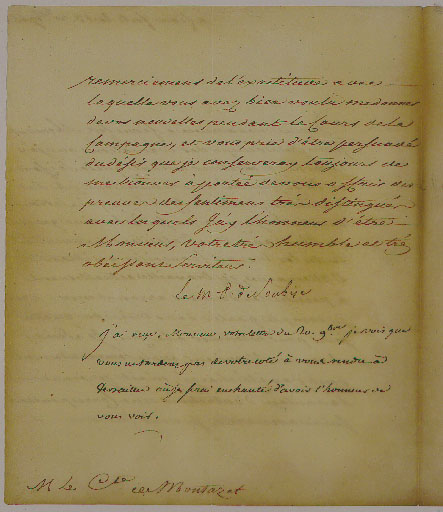 remerciemens de l'exactitude avec
laquelle vous avez bien voulu me donner
de vos nouvelles pendant le Cours de la
Campagne, et vous prie d'être persuadé
du désir que je conserveray toujours de
me trouver à portée de vous offrir des
preuves des sentimens très distingués
avec lesquels J'ay l'honneur d'être
Monsieur, Votre très humble et très
obéissant Serviteur.
Le M. P. de Soubise
J'ai reçu, Monsieur, votre lettre du 20. 9bre je vois que
vous ne tarderez pas de votre coté à vous rendre à
Versailles où je serai enchanté d'avoir l'honneur de
vous voir.
M. Le Cte de Montazet